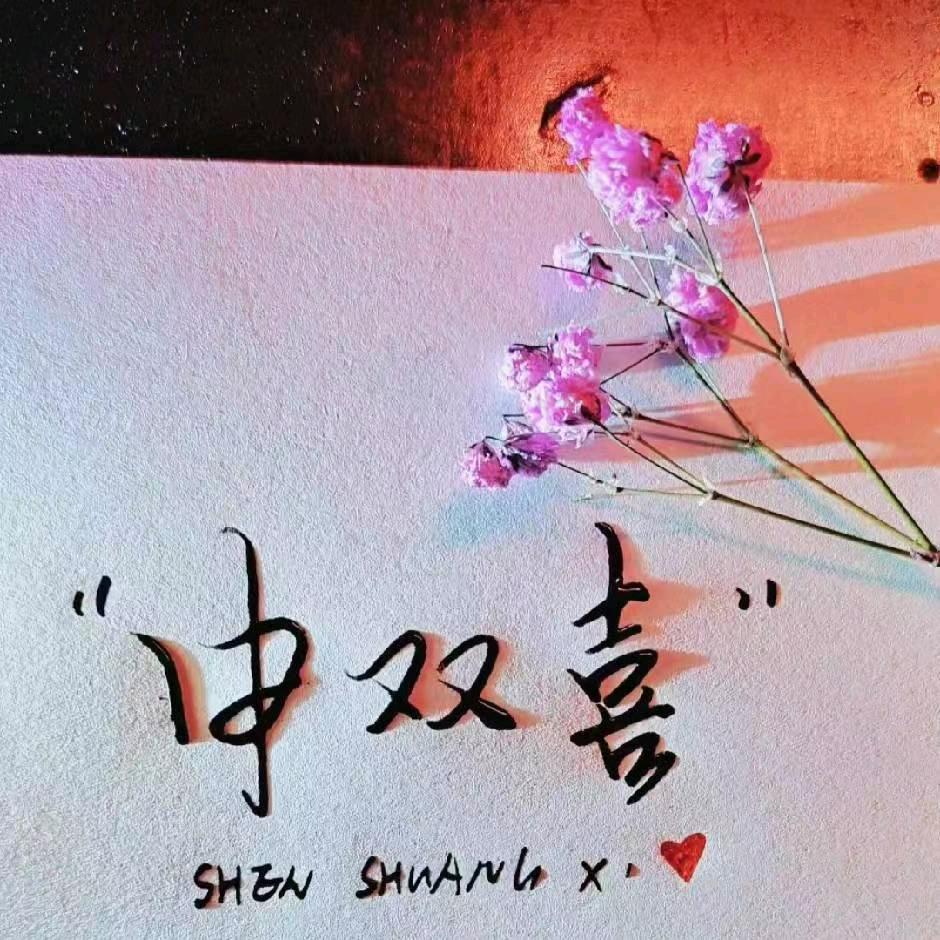 "申双喜"
SHEN SHUANG XI